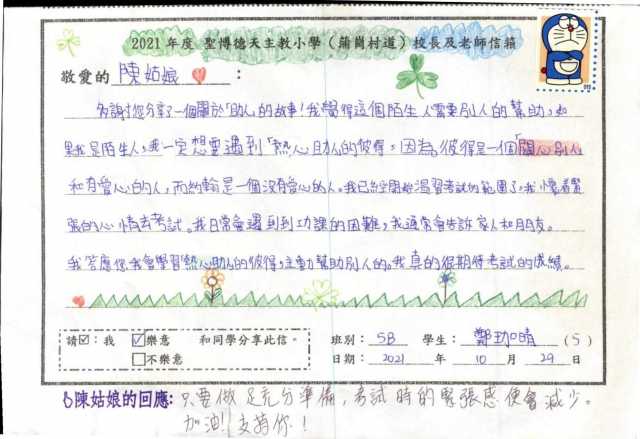 2021年度 聖博德天主教小學(蒲崗村道)校長及老師信箱
敬愛的 陳姑娘 :
多謝您分享了一個關於「助人」的故事!我覺得這個陌生人需要別人的幫助,如
果我是陌生人,我一定想要遇到「熱心助人的彼得,因為彼得是一個「關心別人
和有愛心的人,而約翰是一個沒有愛心的人。我已經開始溫習考試的範圍了,我懷着緊
張的心情去考試。我日常會遇到到功課的困難,我通常會告訴家人和朋友。
我答應您我會學習熱心助人的彼得,主動幫助別人的。我真的很期待考試的成績。
請☑:我 ☑樂意 和同學分享此信。
□不樂意
班別: 5B 學生: 鄭 晴 (5)
日期: 2021 年 10 月 29 日
陳姑娘的回應: 只要做足充分準備,考試時的緊張感便會減少。
加油!支持你!